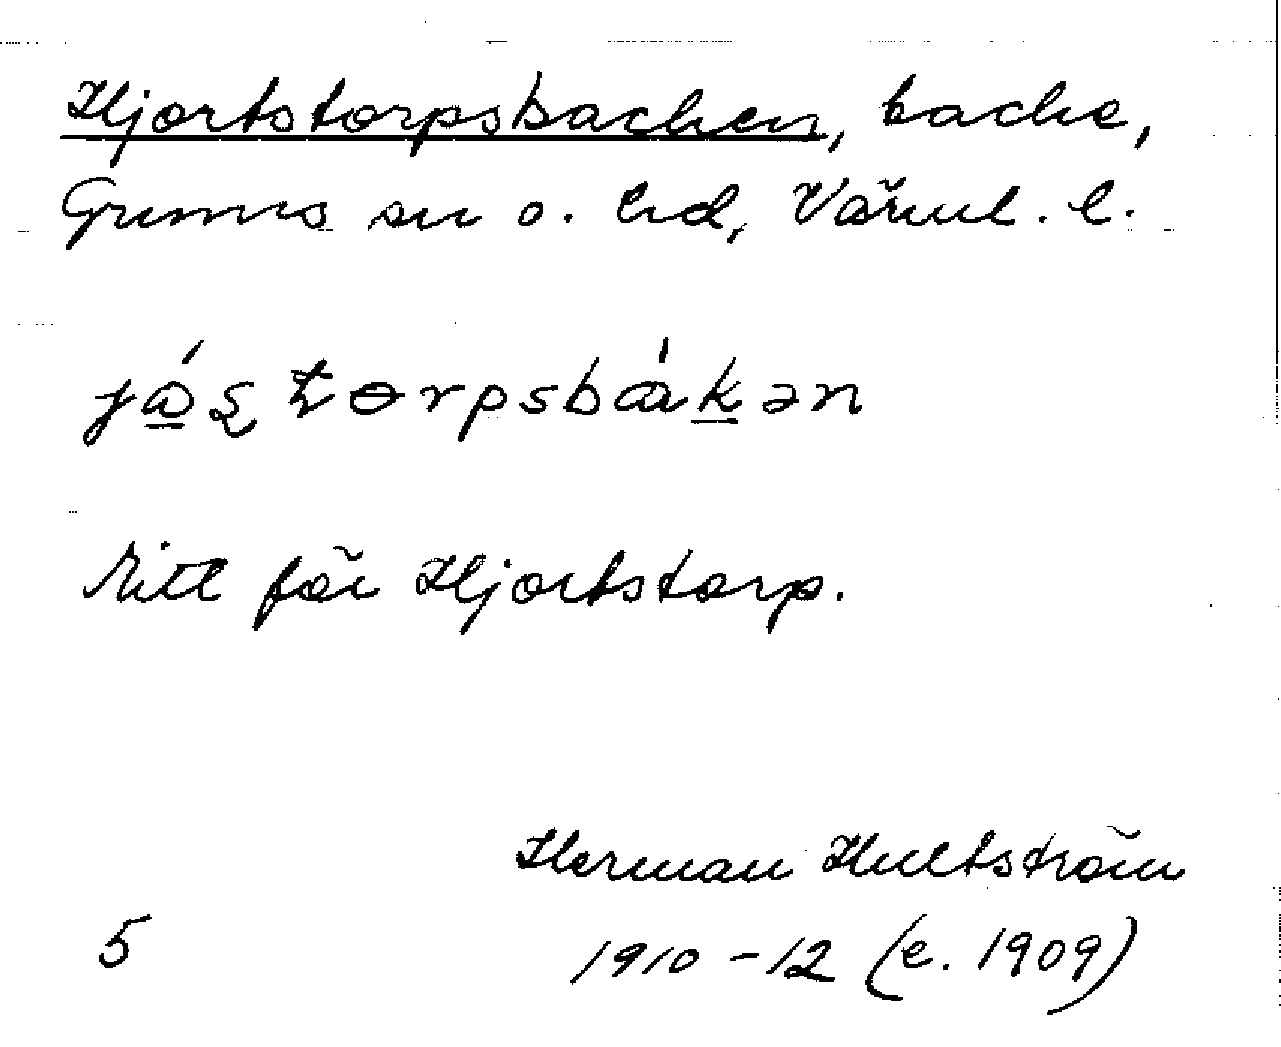 Hjortstorpsbacken, backe,
Grums sn o. hd, Värml. l.
Intill för Hjortstorp.
Herman Hultström
5 1910-12 (e. 1909)